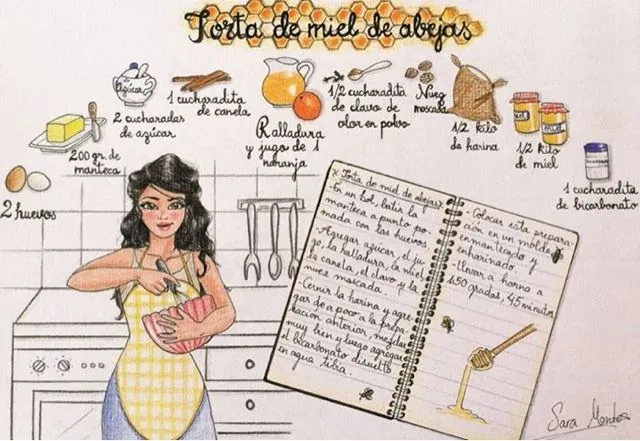 Torta de miel de abejas
2 huevos
200 gr. de
manteca
Azúcar
2 cucharadas
de azúcar
1 cucharadita
de canela
Ralladura
y jugo de 1
naranja
1/2 cucharadita
de clavo de
olor en polvo
Nuez
moscada
1/2 kilo
de harina
1/2 kilo
de miel
1 cucharadita
de bicarbonato
Torta de miel de abejas
-En un bol, batir la
manteca a punto po-
mada con los huevos.
-Agregar azúcar, el ju-
go, la ralladura, la miel
la canela, el clavo y la
nuez moscada.
-Cernir la harina y agre-
gar de a poco a la prepa-
ración anterior, mezclar
muy bien y luego agregar
el bicarbonato disuelto
en agua tibia.
-Colocar esta prepara-
ción en un molde
enmantecado y
enharinado.
-Llevar a horno a
150 grados, 45 minutos
Sara Montes